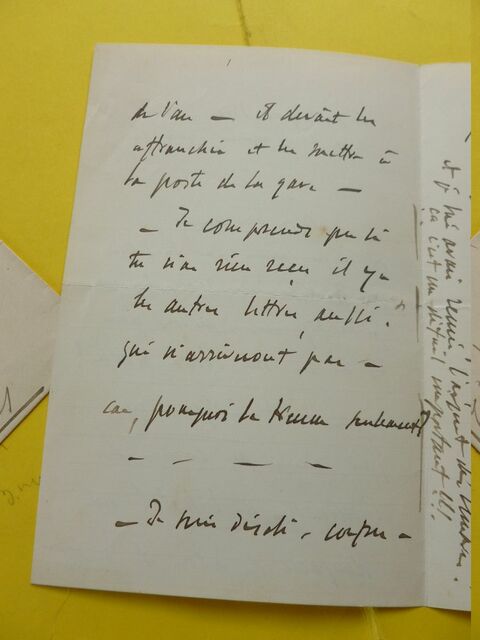 de Vau — il devait les
affranchir et les mettre à
la poste de la gare —
— Je comprends que si
tu n'as rien reçu il y a
les autres lettres, aussi,
qui n'arriveront pas —
car, pourquoi la tienne seulement?
— — — —
— Je suis désolé, confus —
et je lui avais remis l'argent des timbres.
ça c'est un détail important !!!